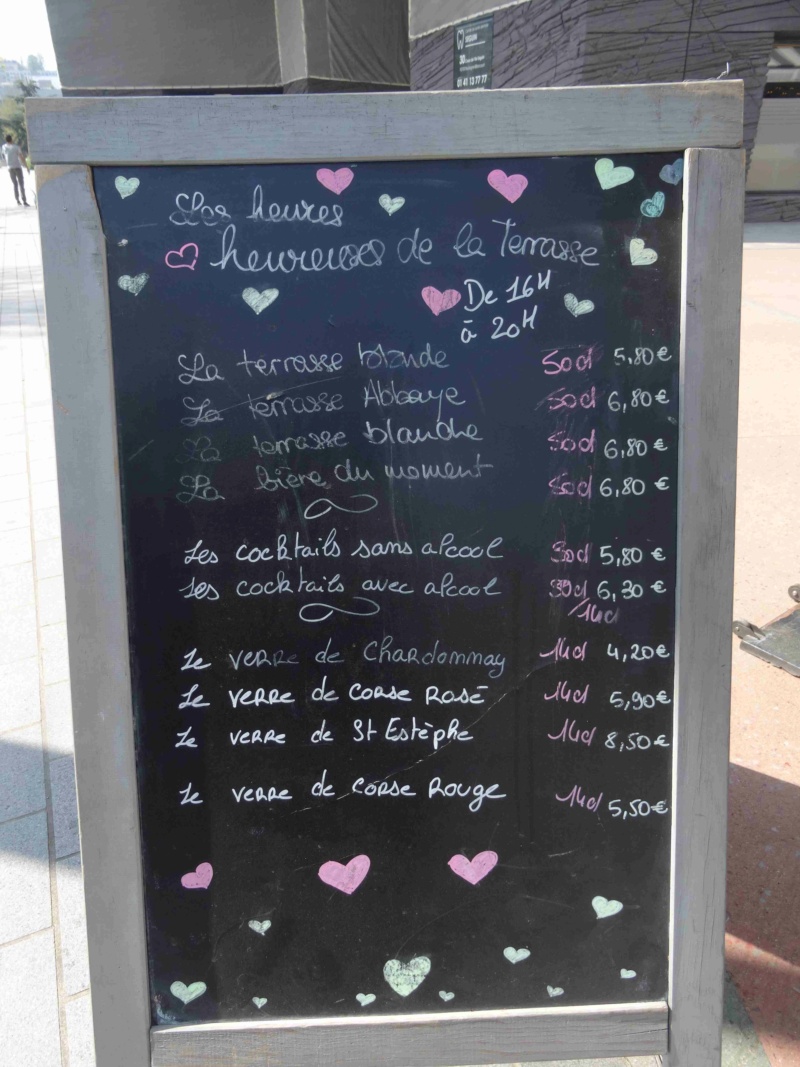 SEGUIN
30
01 41 13 77 77
Les heures
heureuses de la Terrasse
De 16H
à 20H
La terrasse blonde 50cl 5,80€
La terrasse Abbaye 50cl 6,80€
La terrasse blanche 50cl 6,80€
La bière du moment 50cl 6,80€
Les cocktails sans alcool 30cl 5,80€
Les cocktails avec alcool 30cl 6,30€
/14cl
Le verre de Chardonnay 14cl 4,20€
Le verre de Corse Rosé 14cl 5,90€
Le verre de St Estèphe 14cl 8,50€
Le verre de Corse Rouge 14cl 5,50€